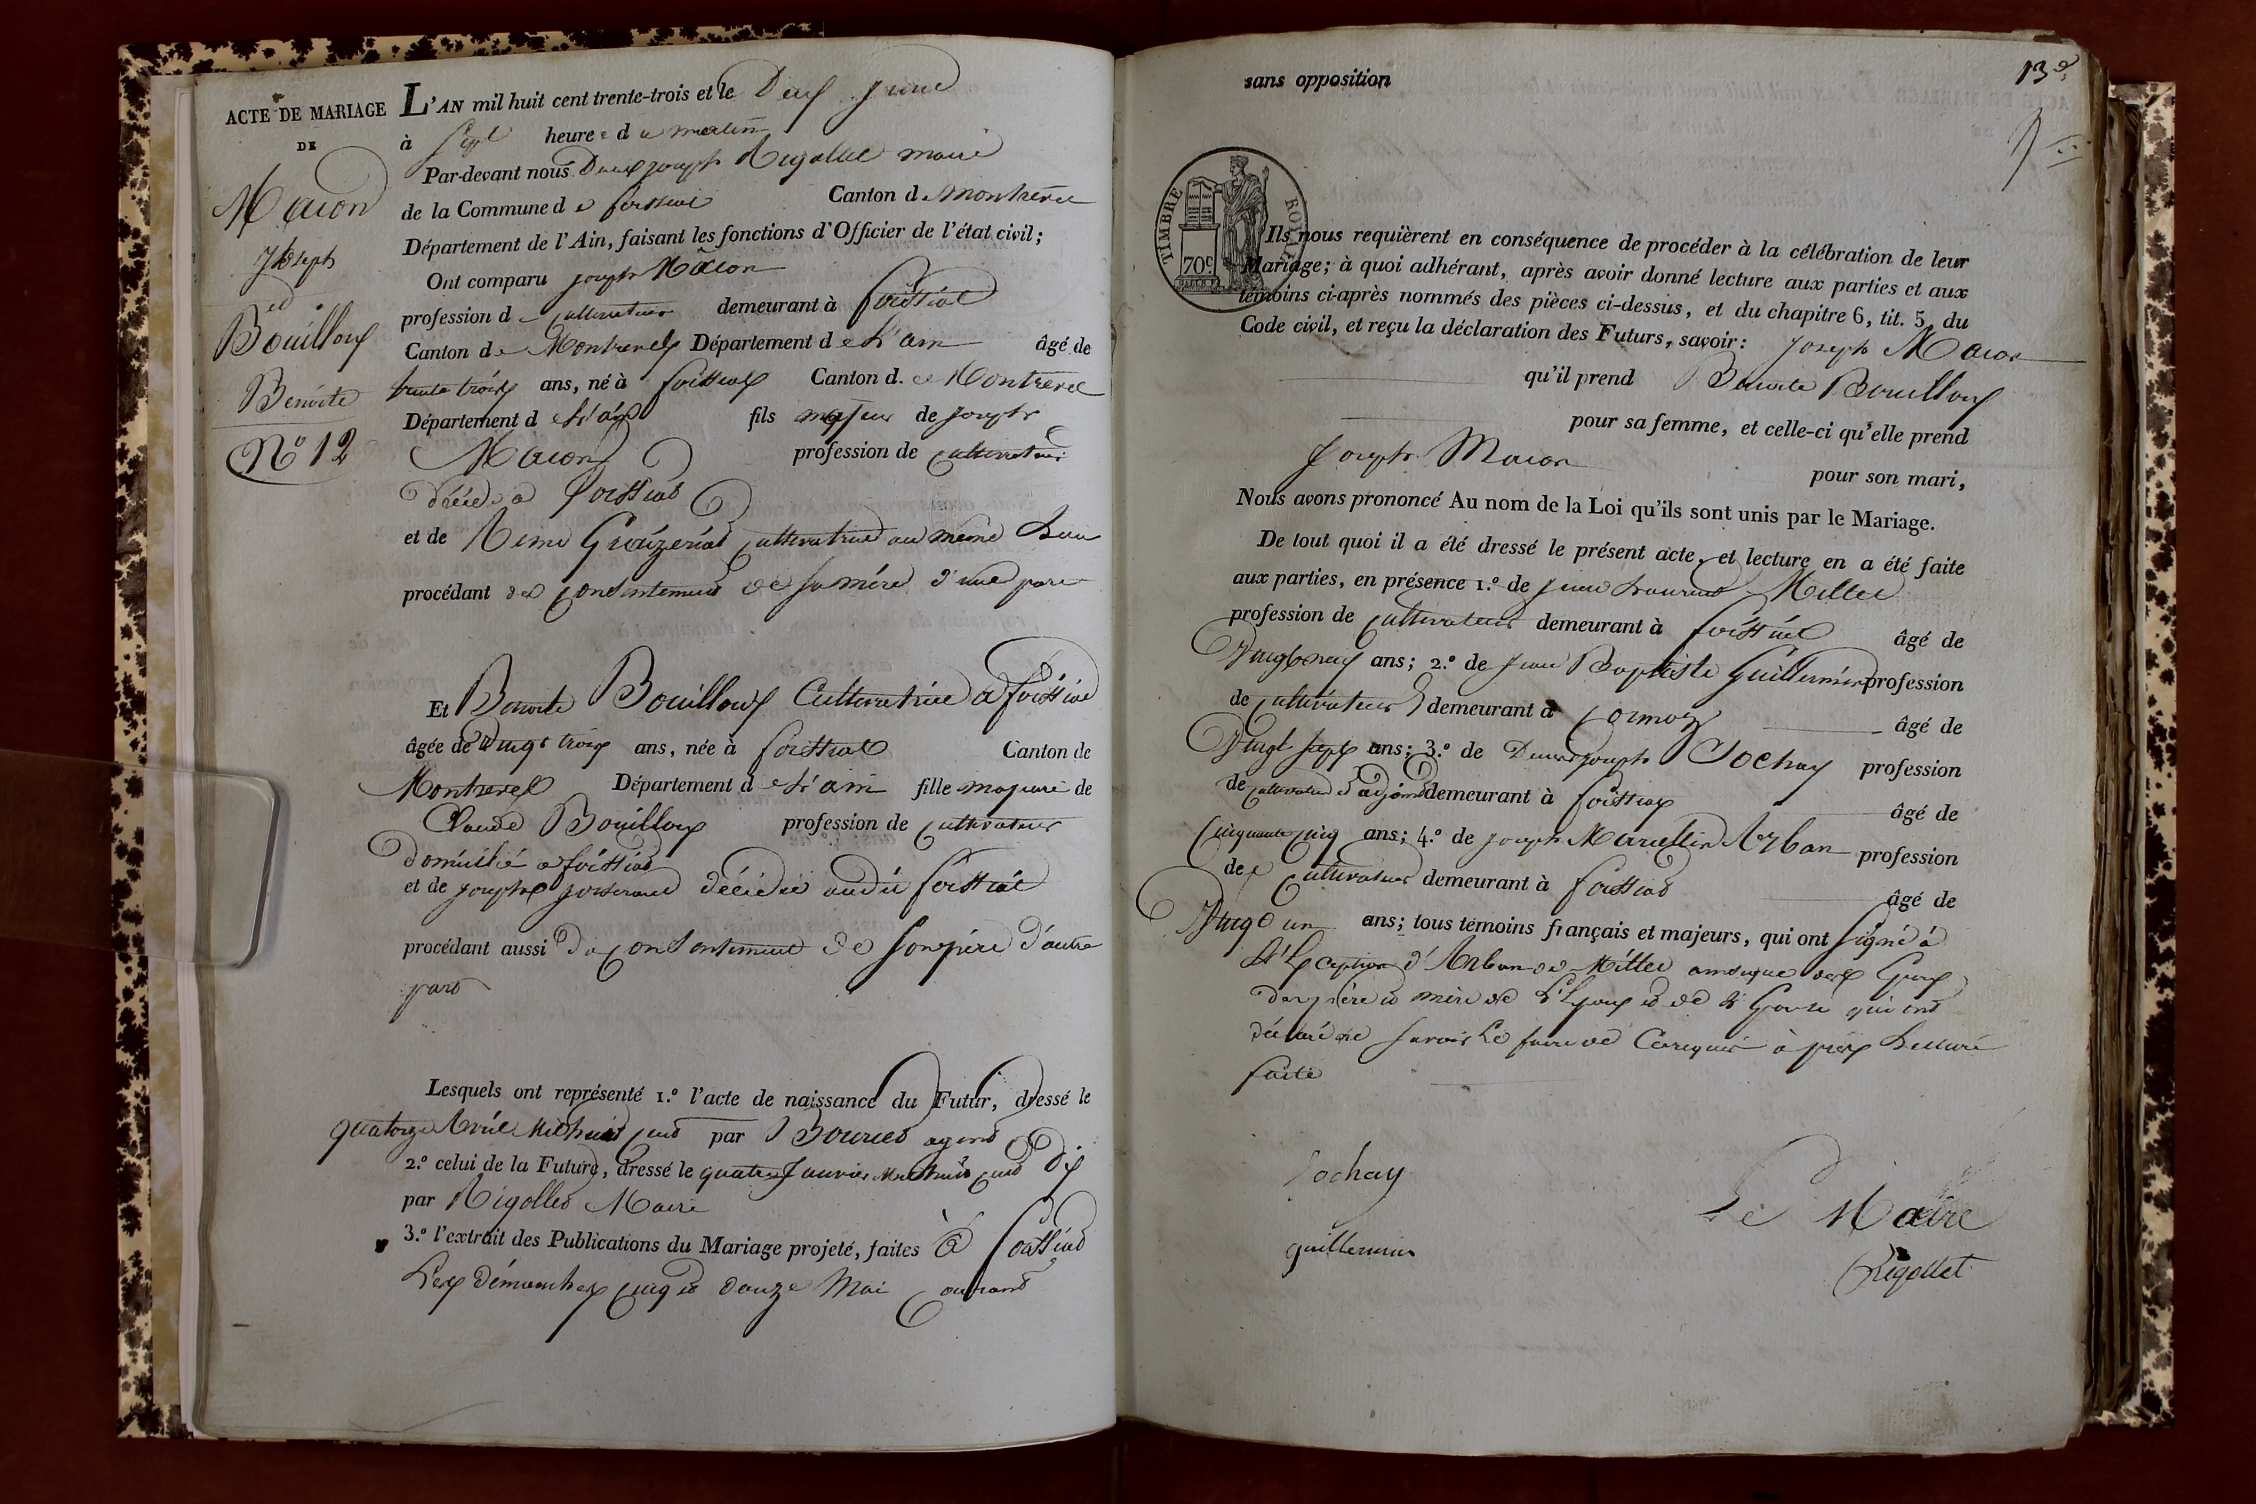 ACTE DE MARIAGE
DE
Macon
Joseph
et
Bouilloux
Benoite
N.º 12
L'AN mil huit cent trente-trois et le Deux Juin
à Sept heures du matin
Par-devant nous Denis Joseph Rigollet maire
de la Commune de foissiat Canton de Montrevel
Département de l'Ain, faisant les fonctions d'Officier de l'état civil;
Ont comparu joseph Mâcon
profession de cultivateur demeurant à foissiat
Canton de Montrevel Département de L'ain âgé de
trente trois ans, né à foissiat Canton de Montrevel
Département de L'ain fils majeur de joseph
Macon profession de cultivateur
décédé a foissiat
et de cultivatrice au même Lieu
procédant du consentement de sa mére d'une part
Et Benoite Bouilloux Cultivatrice a foissiat
âgée de vingt trois ans, née à foissiat Canton de
Montrevel Département de L'ain fille majeure de
Claude Bouilloux profession de cultivateur
domicilié a foissiat
et de josephe josserand décédée audit foissiat
procédant aussi du consentement de son pére d'autre
part
Lesquels ont représenté 1.º l'acte de naissance du Futur, dressé le
quatorze Avril mil huit cent par agent
2.º celui de la Future, dressé le quatre Janvier mil huit cent dix
par Rigollet Maire
3.º l'extrait des Publications du Mariage projeté, faites à foissiat
Les dimanches cinq et douze Mai courant
sans opposition
13e
TIMBRE ROYAL
70c
Ils nous requièrent en conséquence de procéder à la célébration de leur
Mariage; à quoi adhérant, après avoir donné lecture aux parties et aux
témoins ci-après nommés des pièces ci-dessus, et du chapitre 6, tit. 5, du
Code civil, et reçu la déclaration des Futurs, savoir: Joseph Macon
qu'il prend Benoite Bouilloux
pour sa femme, et celle-ci qu'elle prend
Joseph Macon pour son mari,
Nous avons prononcé Au nom de la Loi qu'ils sont unis par le Mariage.
De tout quoi il a été dressé le présent acte, et lecture en a été faite
aux parties, en présence 1.º de Millet
profession de cultivateur demeurant à foissiat âgé de
Vingt neuf ans; 2.º de Jean Baptiste Guillermin profession
de cultivateur demeurant à Cormoz âgé de
Vingt sept ans; 3.º de Denis joseph Sochay profession
de cultivateur et adjoint demeurant à foissiat âgé de
cinquante cinq ans; 4.º de joseph Marcellin Arban profession
de cultivateur demeurant à foissiat âgé de
Vingt un ans; tous témoins français et majeurs, qui ont signé à
L'Exception d'Arban et Millet
pére et mère de L'Epoux et de qui ont
déclaré ne savoir Le faire de Ce requis après Lecture
faite
Sochay
guillermin
Le Maire
Rigollet